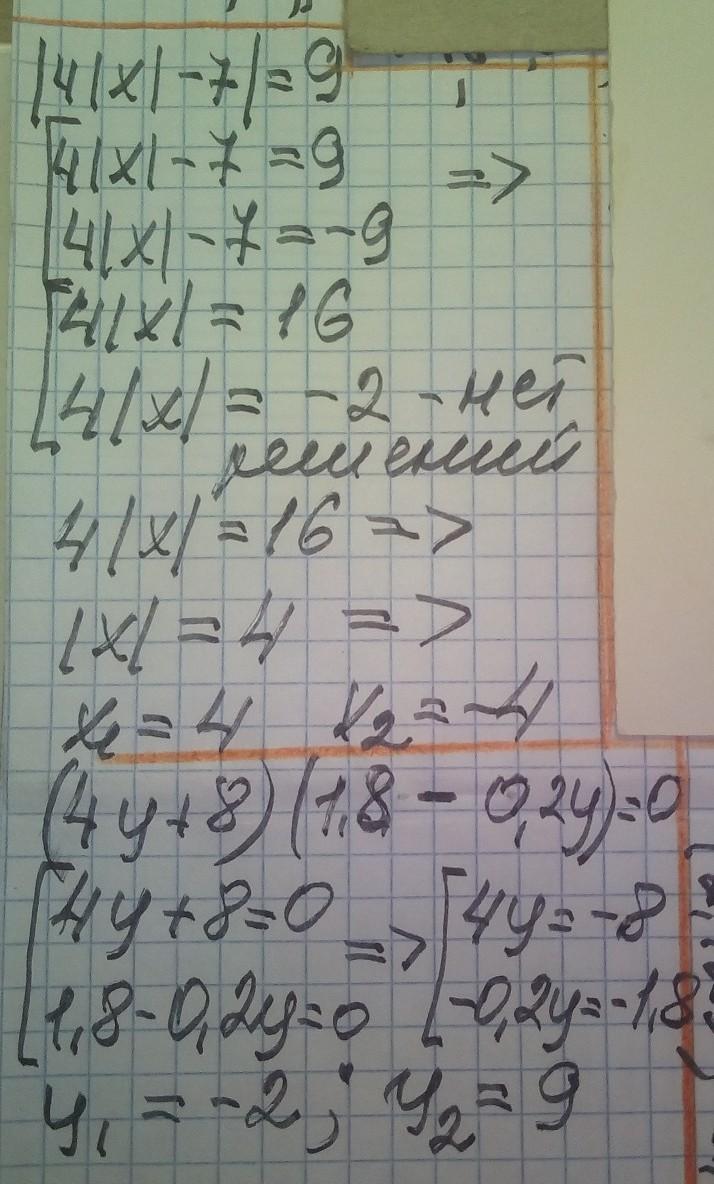 |4|x| - 7| = 9
4|x| - 7 = 9 =>
4|x| - 7 = -9
4|x| = 16
4|x| = -2 - нет
решений
4|x| = 16 =>
|x| = 4 =>
x₁ = 4 x₂ = -4
(4y + 8)(1,8 - 0,2y) = 0
4y + 8 = 0 => 4y = -8
1,8 - 0,2y = 0 -0,2y = -1,8
y₁ = -2; y₂ = 9